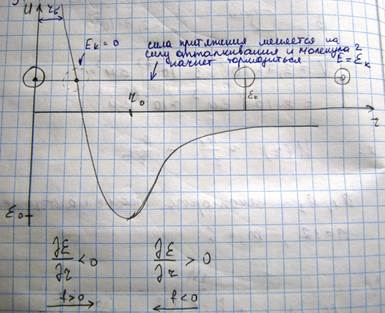 U
r₀
Eк = 0
сила притяжения меняется на
силу отталкивания и молекула 2
начнет тормозиться
E = Eк
r₀
r
ε₀
∂E/∂r < 0
∂E/∂r > 0
f>0
f<0